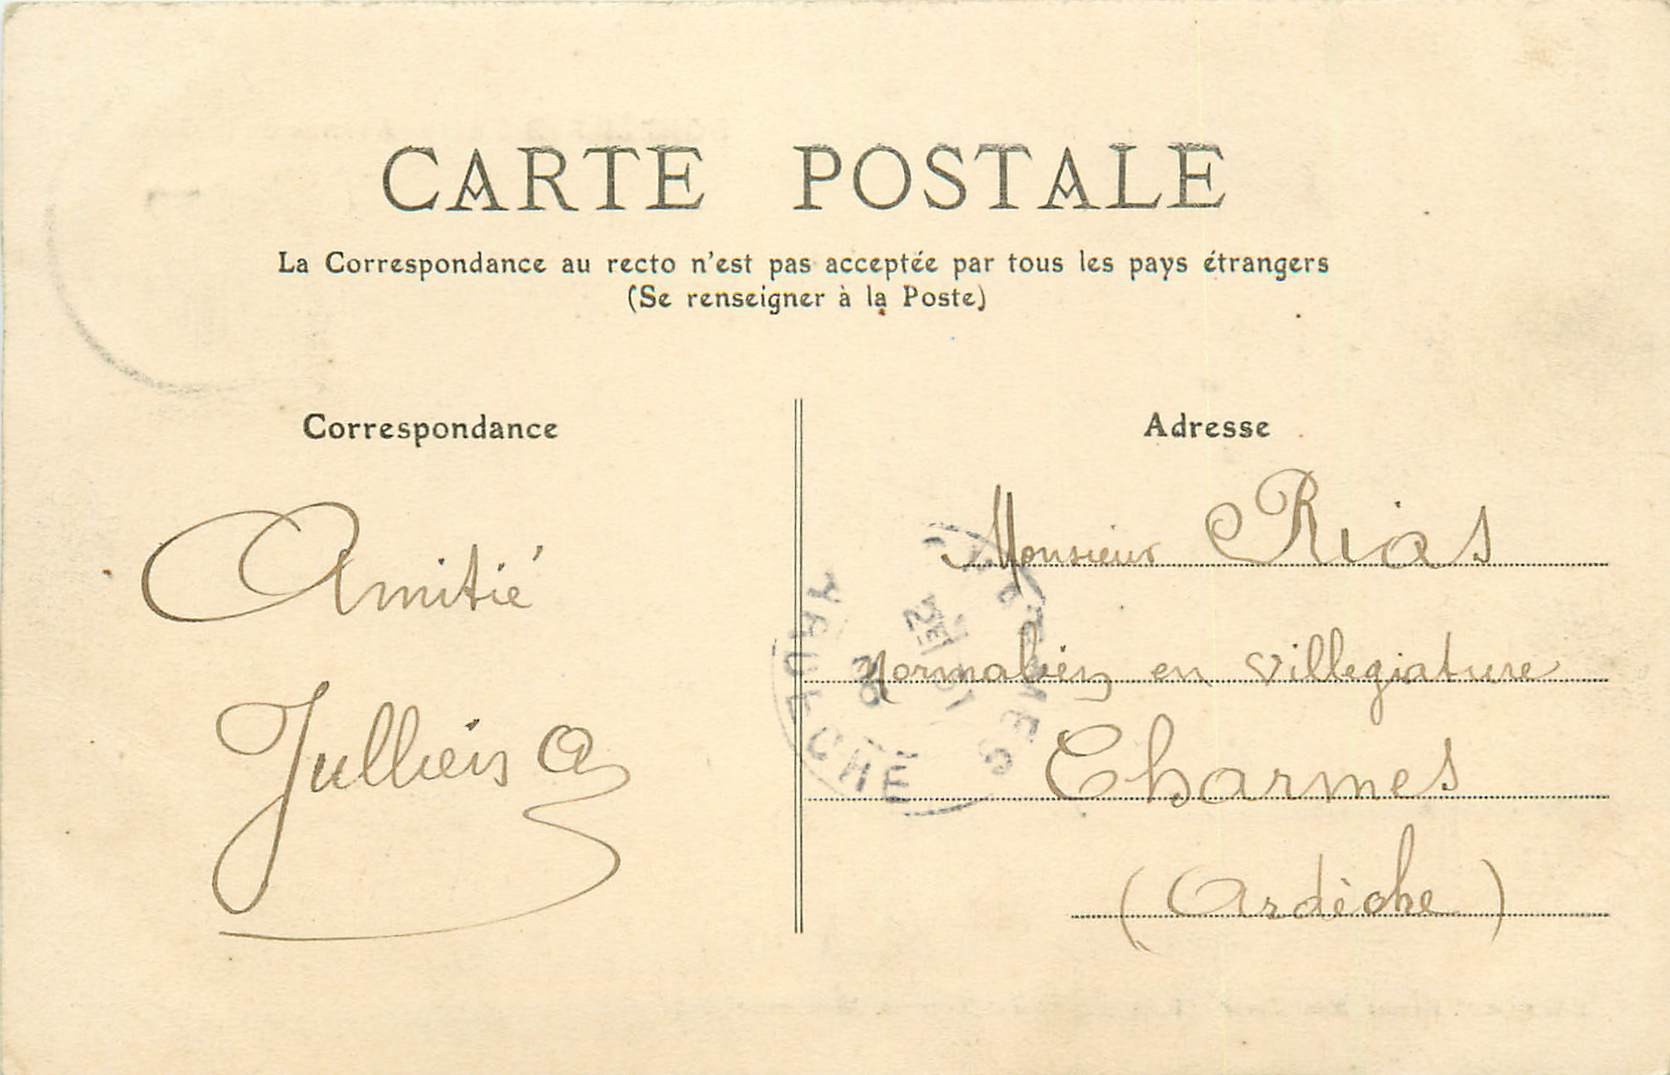 CARTE POSTALE
La Correspondance au recto n'est pas acceptée par tous les pays étrangers
(Se renseigner à la Poste)
Correspondance
Adresse
Amitié
Jullien A
Monsieur Rias
Normalien en villegiature
Charmes
(Ardèche)
ARDECHE